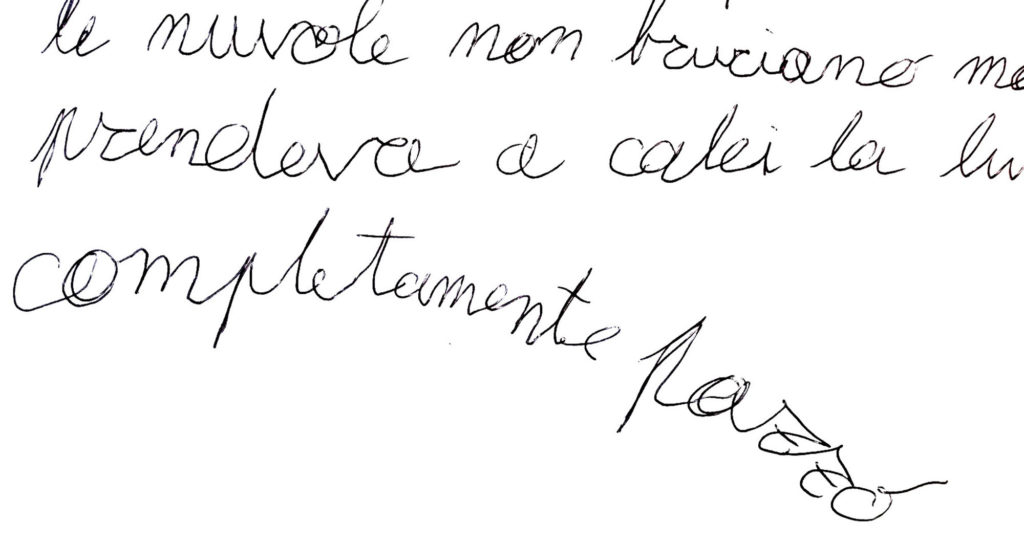 le nuvole non bruciano
prendeva a calci la
completamente pazzo